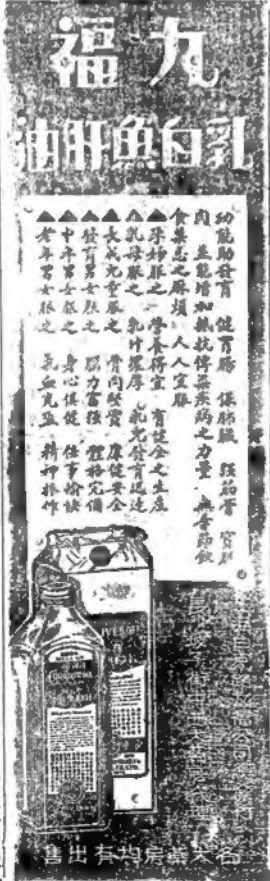 九福
乳白魚肝油
幼能助發育 健胃腸 保肺臟 強筋骨 實肌
肉 並能增加抵抗傳染疾病之力量 無季節飲
食禁忌之麻煩 人人宜服
▲孕婦服之 營養得宜 育健全之生産
▲乳母服之 乳汁濃厚 乳兒發育迅速
▲長成兒童服之 骨肉堅實 康健安全
▲發育男女服之 腦力富強 體格完備
▲中年男女服之 身心俱健 任事愉快
▲老年男女服之 氣血充盈 精神振作
各大藥房均有出售